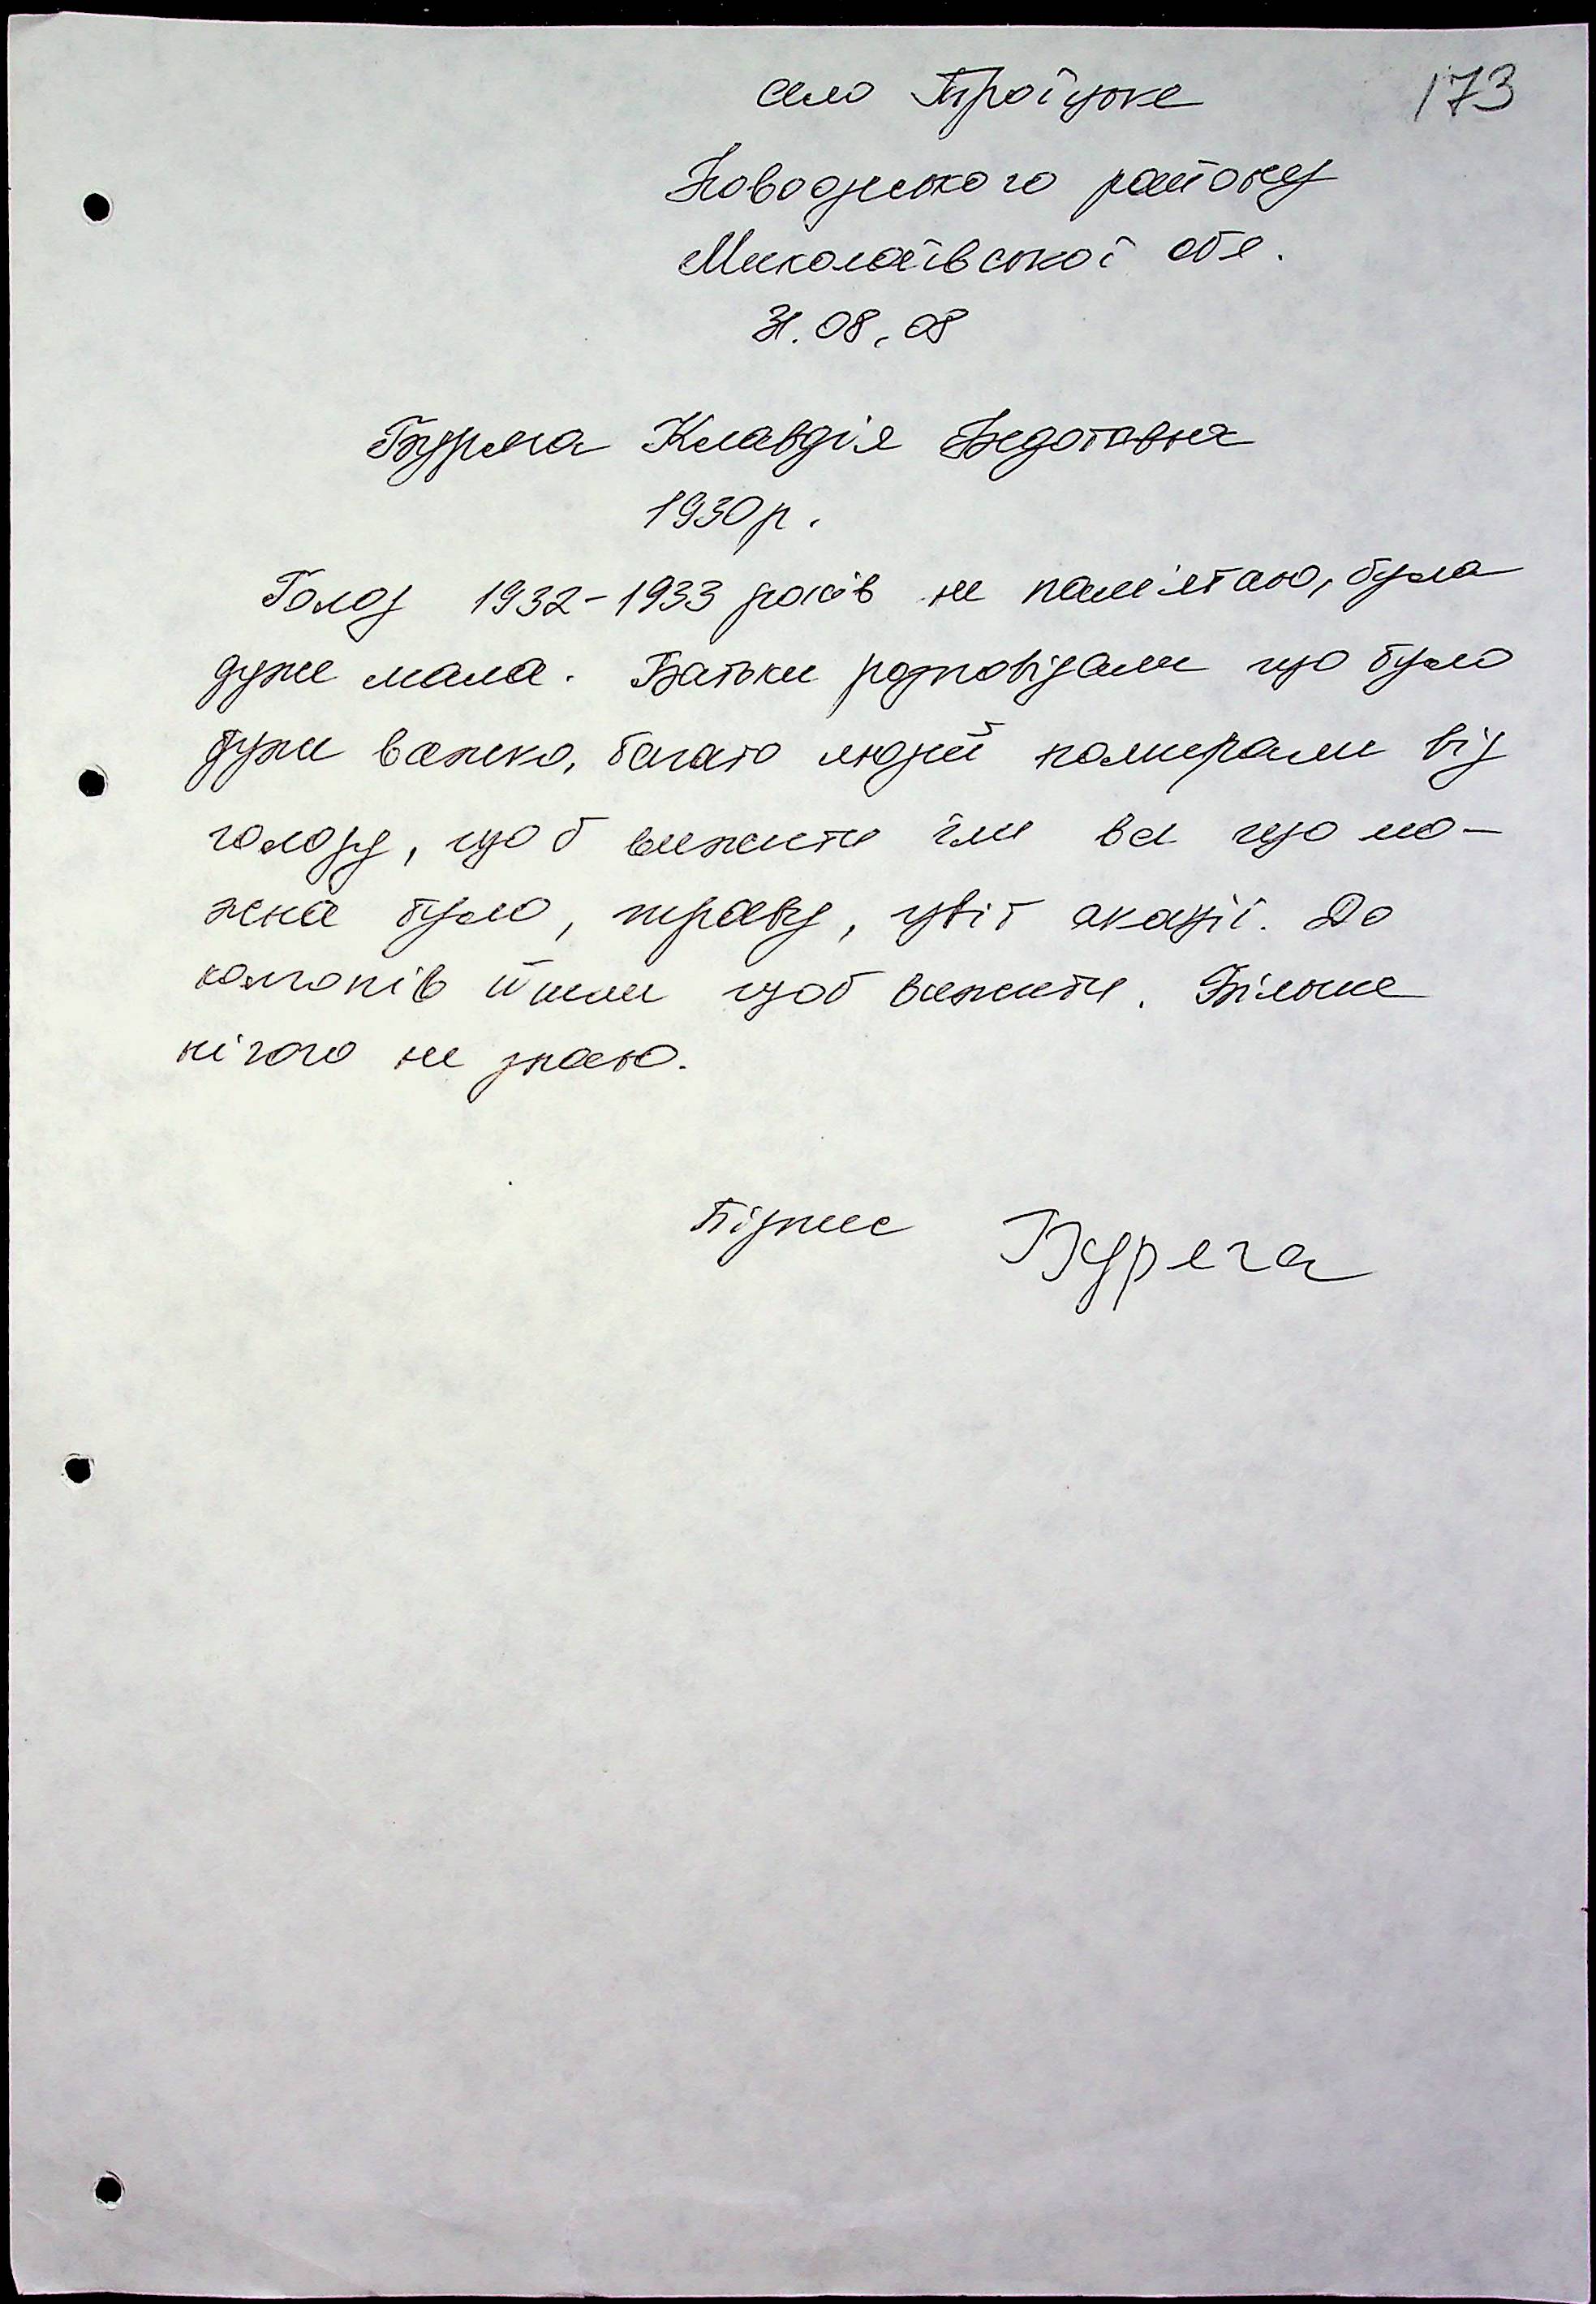 село Троїцьке
173
Новоодеського району
Миколаївської обл.
31.08.08
Буряга Клавдія Федотовна
1930 р.
Голод 1932-1933 років не пам'ятаю, була
дуже мала. Батьки розповідали що було
дуже важко, багато людей помирали від
голоду, щоб вижити їли все що мо-
жна було, траву, цвіт акації. До
колгопів йшли щоб вижити. Більше
нічого не знаю.
Підпис Буряга